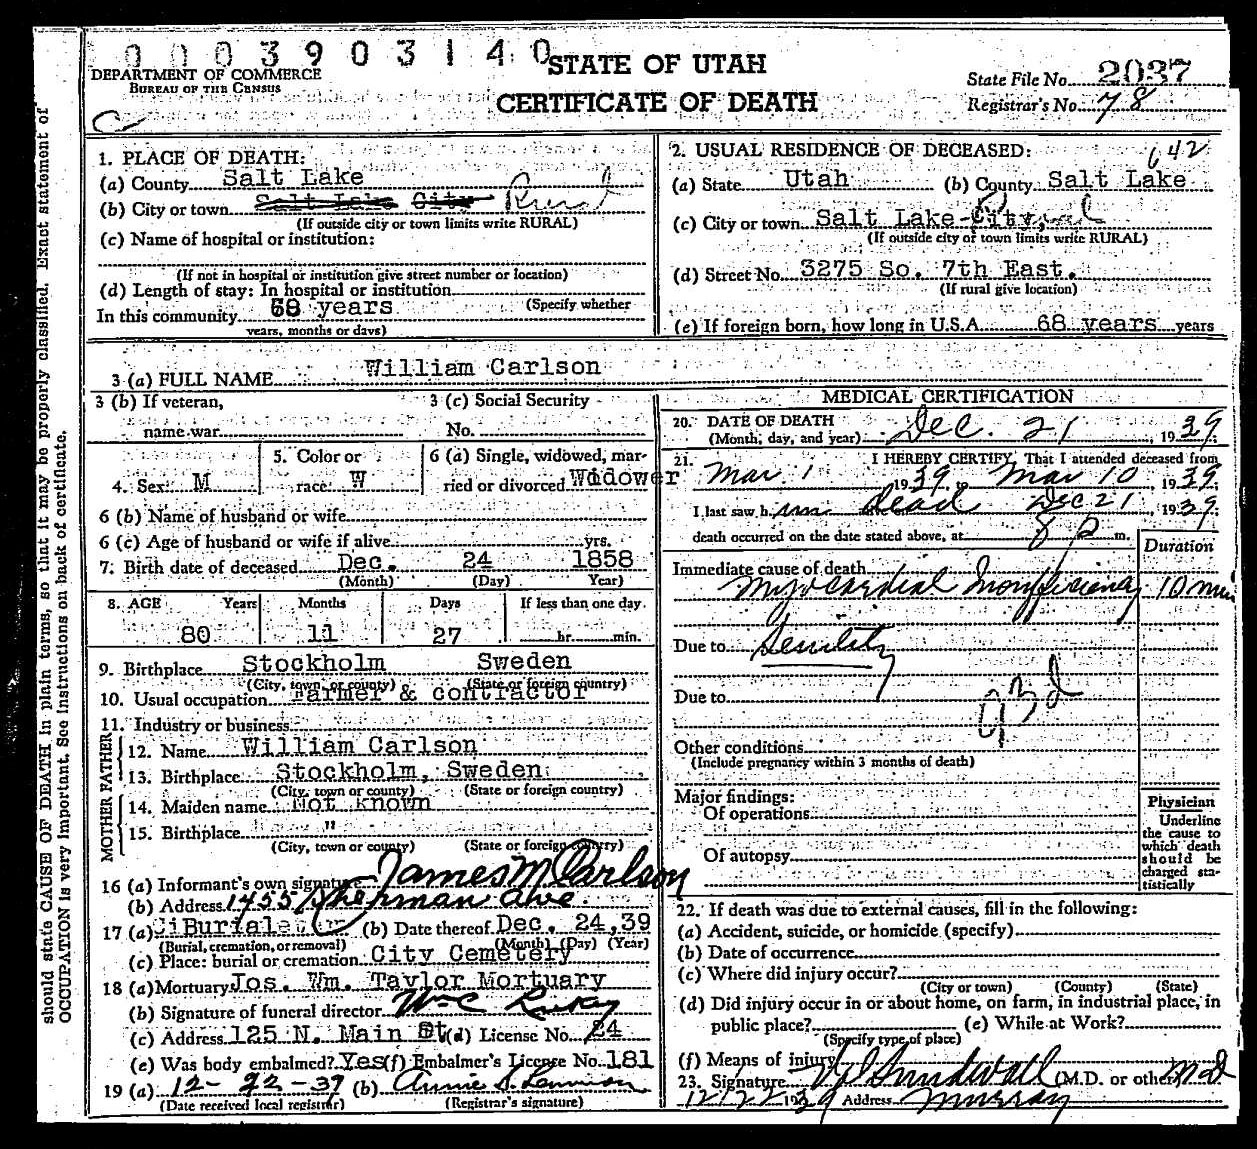 0003903140
STATE OF UTAH
DEPARTMENT OF COMMERCE
BUREAU OF THE CENSUS
CERTIFICATE OF DEATH
State File No. 2037
Registrar's No. 78
1. PLACE OF DEATH:
(a) County Salt Lake
(b) City or town Salt Lake City Rural
(If outside city or town limits write RURAL)
(c) Name of hospital or institution:
(If not in hospital or institution give street number or location)
(d) Length of stay: In hospital or institution
(Specify whether
In this community 68 years
years, months or days)
2. USUAL RESIDENCE OF DECEASED: 642
(a) State Utah (b) County Salt Lake
(c) City or town Salt Lake City, Rural
(If outside city or town limits write RURAL)
(d) Street No. 3275 So. 7th East.
(If rural give location)
(e) If foreign born, how long in U.S.A. 68 years years
3 (a) FULL NAME William Carlson
3 (b) If veteran,
name war
3 (c) Social Security
No.
4. Sex M
5. Color or
race W
6 (a) Single, widowed, mar-
ried or divorced Widower
6 (b) Name of husband or wife
6 (c) Age of husband or wife if alive yrs.
7. Birth date of deceased Dec. 24 1858
(Month) (Day) Year)
8. AGE Years Months Days If less than one day.
80 11 27 hr. min.
9. Birthplace Stockholm Sweden
(City, town or county) (State or foreign country)
10. Usual occupation Farmer & contractor
11. Industry or business
FATHER
12. Name William Carlson
13. Birthplace Stockholm, Sweden
(City, town or county) (State or foreign country)
MOTHER
14. Maiden name Not known
15. Birthplace "
(City, town or county) (State or foreign country)
16 (a) Informant's own signature James M Carlson
(b) Address 1455 Sherman Ave
17 (a) Burial (b) Date thereof Dec. 24,39
(Burial, cremation, or removal) (Month) (Day) (Year)
(c) Place: burial or cremation City Cemetery
18 (a) Mortuary Jos. Wm. Taylor Mortuary
(b) Signature of funeral director
(c) Address 125 N. Main St (d) License No. 24
(e) Was body embalmed? Yes (f) Embalmer's License No. 181
19 (a) 12-22-39 (b) Annie S.
(Date received local registrar) (Registrar's signature)
MEDICAL CERTIFICATION
20. DATE OF DEATH
(Month, day, and year) Dec. 21 1939
21. I HEREBY CERTIFY, That I attended deceased from
Mar 1 1939 to Mar 10, 1939
I last saw him dead Dec 21, 1939
death occurred on the date stated above, at 8 p m.
Duration
Immediate cause of death
Myocardial Insufficiency 10 min
Due to Senility
Due to
93d
Other conditions
(Include pregnancy within 3 months of death)
Major findings:
Of operations
Of autopsy
Physician
Underline
the cause to
which death
should be
charged sta-
tistically
22. If death was due to external causes, fill in the following:
(a) Accident, suicide, or homicide (specify)
(b) Date of occurrence
(c) Where did injury occur?
(City or town) (County) (State)
(d) Did injury occur in or about home, on farm, in industrial place, in
public place? (e) While at Work?
(Specify type of place)
(f) Means of injury
23. Signature Sundwall (M.D. or other) MD
12/22 1939 Address Murray
should state CAUSE OF DEATH in plain terms, so that it may be properly classified. Exact statement of
OCCUPATION is very important. See instructions on back of certificate.